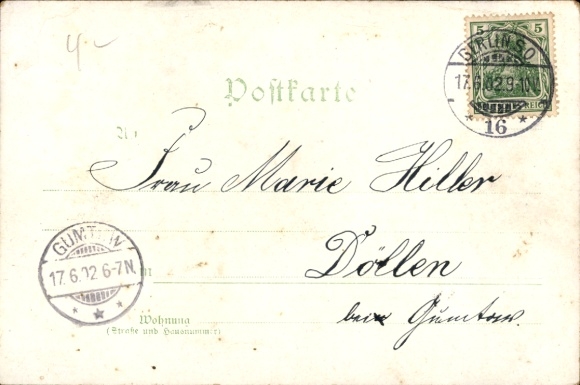 4-
5 5
BERLIN S.O.
17.6.02.9-10N.
* 16 *
REICH
Postkarte
A
Frau Marie Hiller
Döllen
bei Gumtow.
GUMTOW
17.6.02 6-7N.
in
Wohnung
(Straße und Hausnummer)